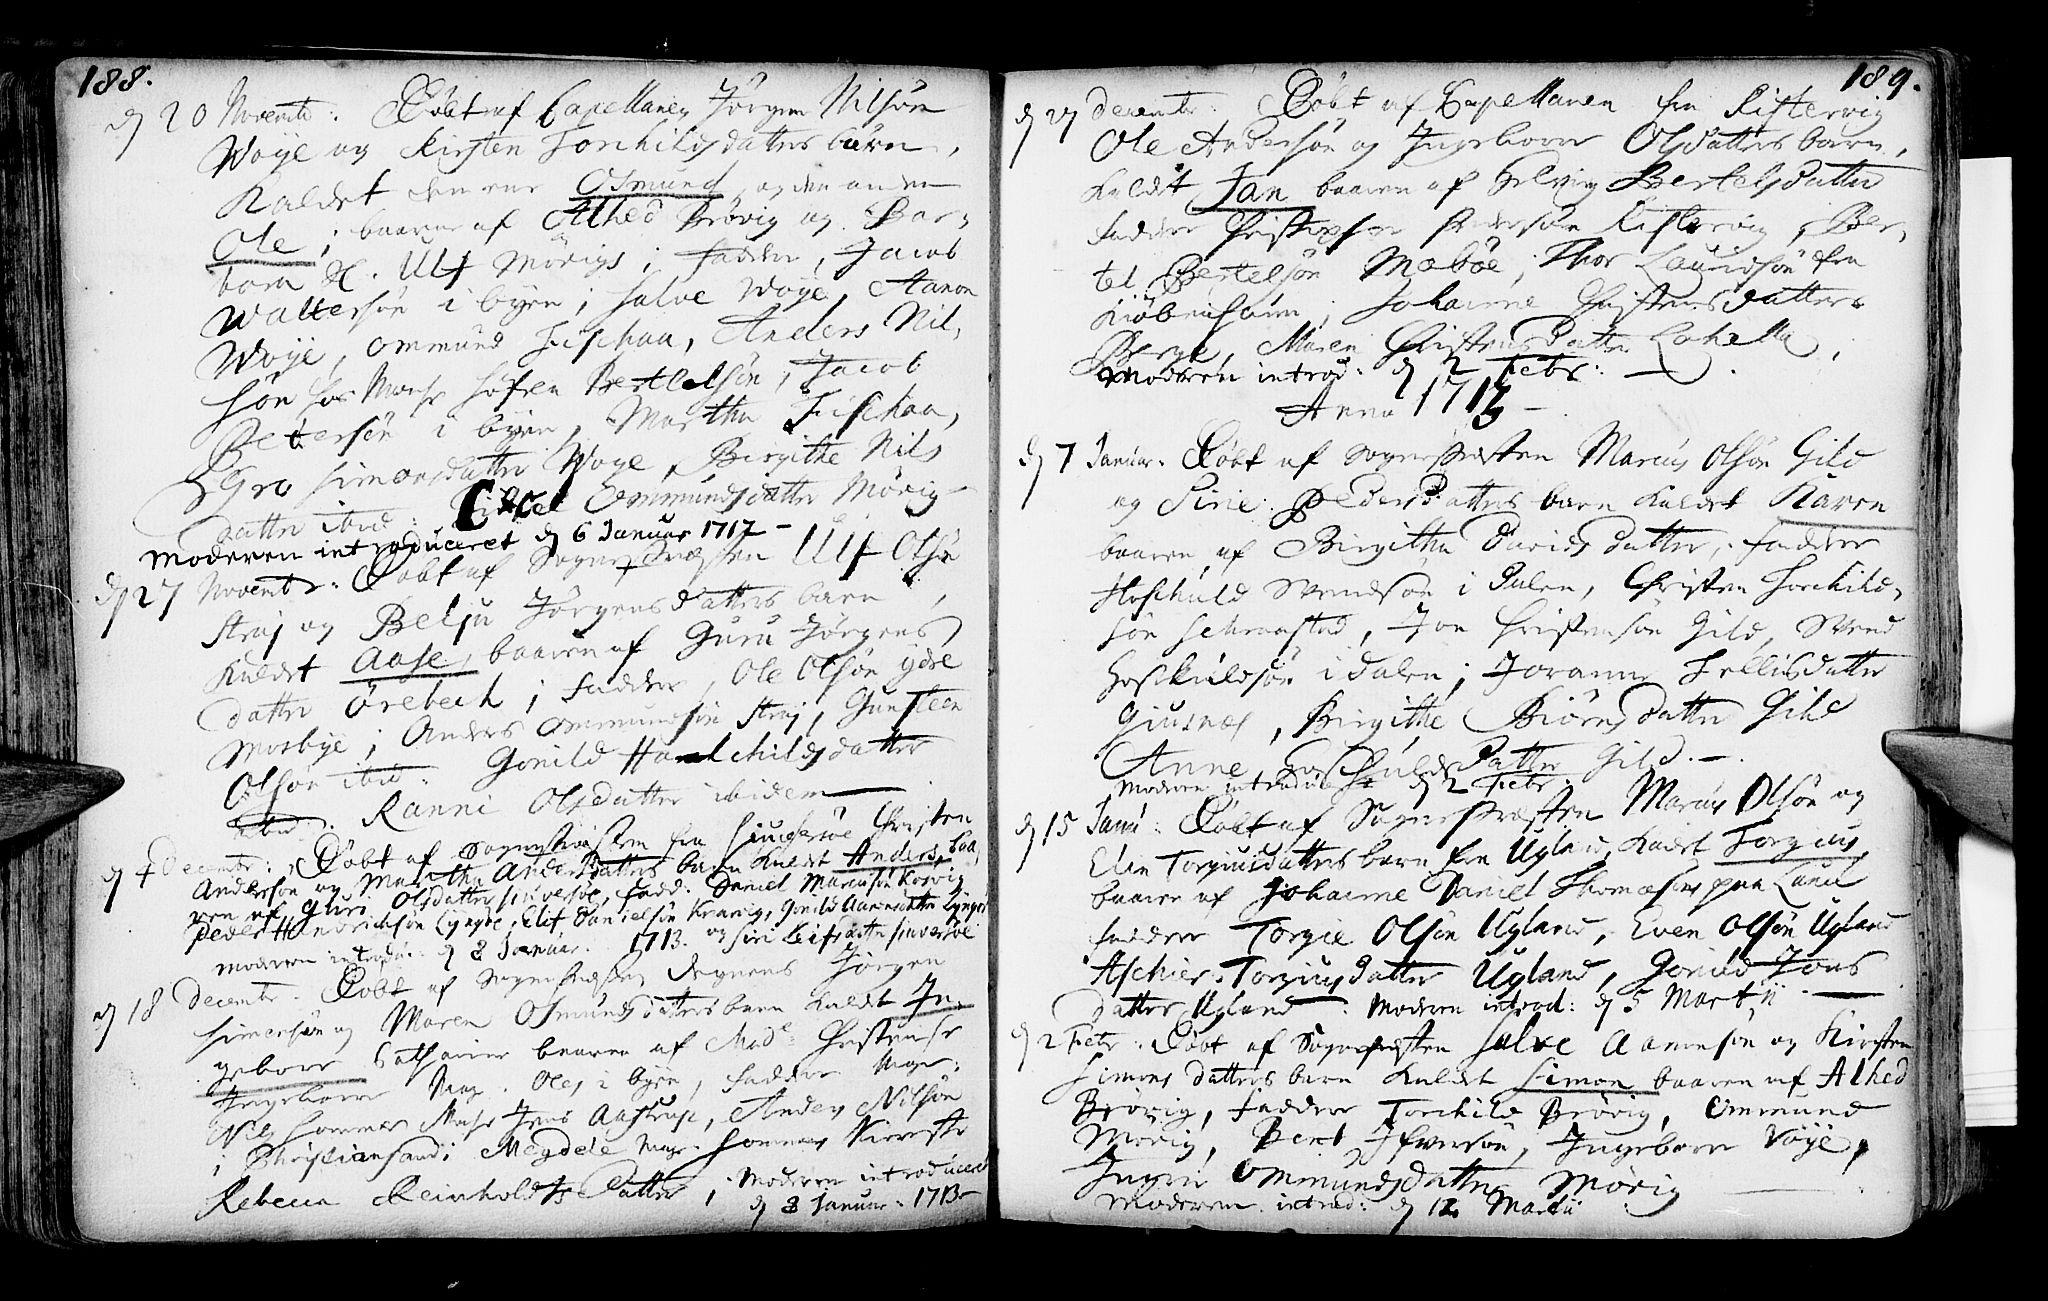 188.
d 20 Novembr: Døbt af Capellanen Jørgen Nilsøn
Woye og Kirsten Torchildsdatters børn,
Kaldet den ene Osmund, og den anden
Ole; baaren af Alhed Brøvig og Bar-
bara H. Ulf Mørigs; Fadder, Jacob
Waltersøn i byen; Salve Woye, Aanon
Woye, Ommund Fischaa, Anders Nil-
søn hos Monsr Søfren Bertelsøn, Jacob
Pettersøn i byen, Martha Fischaa,
Gro Simonsdatter Woye, Birgithe Nils
datter ibid: Ommundsdatter Mørig
Moderen introduceret d 6 Januar 1717
d 27 Novembr: Døbt af Sognepræsten Ulf Olsøn
Straj og Belju Jørgensdatters barn
Kaldet Aase, baaren af Guru Jørgens
datter Örebech; Fadder, Ole Olsøn ydre
Mosbye; Anders Ommundsøn Straj, Gunsteen
Olsøn ibid: Gonild Haalchildsdatter
ibid: Ranni Olsdatter ibidem
d 4 Decembr: Døbt af Sognepræsten fra Christen
Andersøn og Martha Andersdatters barn Kaldet Anders, baa-
ren af Guri Olsdatter, Fadd: Daniel Marcusøn Kosvig
Peder Hendrichsøn Lyngøe, Elif Danielsøn, Gonild Aanensdatter
moderen introdu: d 8 Januar. 1713. og Siri Leifsdatter
d 18 Decembr. Døbt af Sognepræsten Degnens Jørgen
Simensøn og Maren Osmundsdatters barn Kaldet In-
geborre Cathrine baaren af Made Christense
Ingeborre Mag. Oles i byen, Fadder Mage-
Nils Sommer Monsr Jens Aastrup, Anders Nilsøn
i Christiansand; Magdele Mag. Sommers Kiereste
Rebecca Reinholdts Datter; Moderen introduceret
d 8 Januar. 1713
189.
d 27 decembr: Døbt af Capellanen fra Kistervig
Ole Andersøn og Ingeborre Olsdatters barn,
Kaldet Jan baaren af Bertelsdatter
Fadder Christopher Andersøn Kistervig, Ber-
tel Bertelsøn Maböe, Thor Lauridsøn fra
Kiöbenhavn, Johanne Christensdatter
Berge, Maren Christensdatter Lahella,
Moderen introd: d 2 Febr:
Anno 1713
d 7 Januar. Døbt af Sognepræsten Marcus Olsøn Gild
og Sirie Pedersdatters barn Kaldet Karen
baaren af Birgitha Davidsdatter, Fadder
Hoschuld Svendsøn i Dalen, Christen Torchild-
søn Schraastad, Jon Christensøn Gild, Svend
Hoschuldsøn i dalen; Joranne Tellisdatter
Giusnes, Birgithe Biørnsdatter Gild
Anne Hoschuldsdatter Gild.
Moderen introdu: d 2 Febr
d 15 Janu: Døbt af Sognepræsten Marcus Olsøn og
Elen Torgiusdatters barn fra Ugland, Kaldet Torgius,
baaren af Johanne Daniel Thomæsøns paa Lund
Fadder Torgie Olsøn Ugland, Even Olsøn Ugland
Aschier Torgiusdatter Ugland, Gonild Jons
datter Ugland. Moderen introd: d 5 Martii
d 2 Febr. Døbt af Sognepræsten Salve Aanensøn og Kirsten
Simons datters barn Kaldet Simon baaren af Alhed
Brøvig, Fadder Torchild Brøvig, Ommund
Mørig, Bent Ifversøn, Ingeborre Vöye,
Ingri Ommundsdatter Mørig
Moderen introd: d 12 Martii